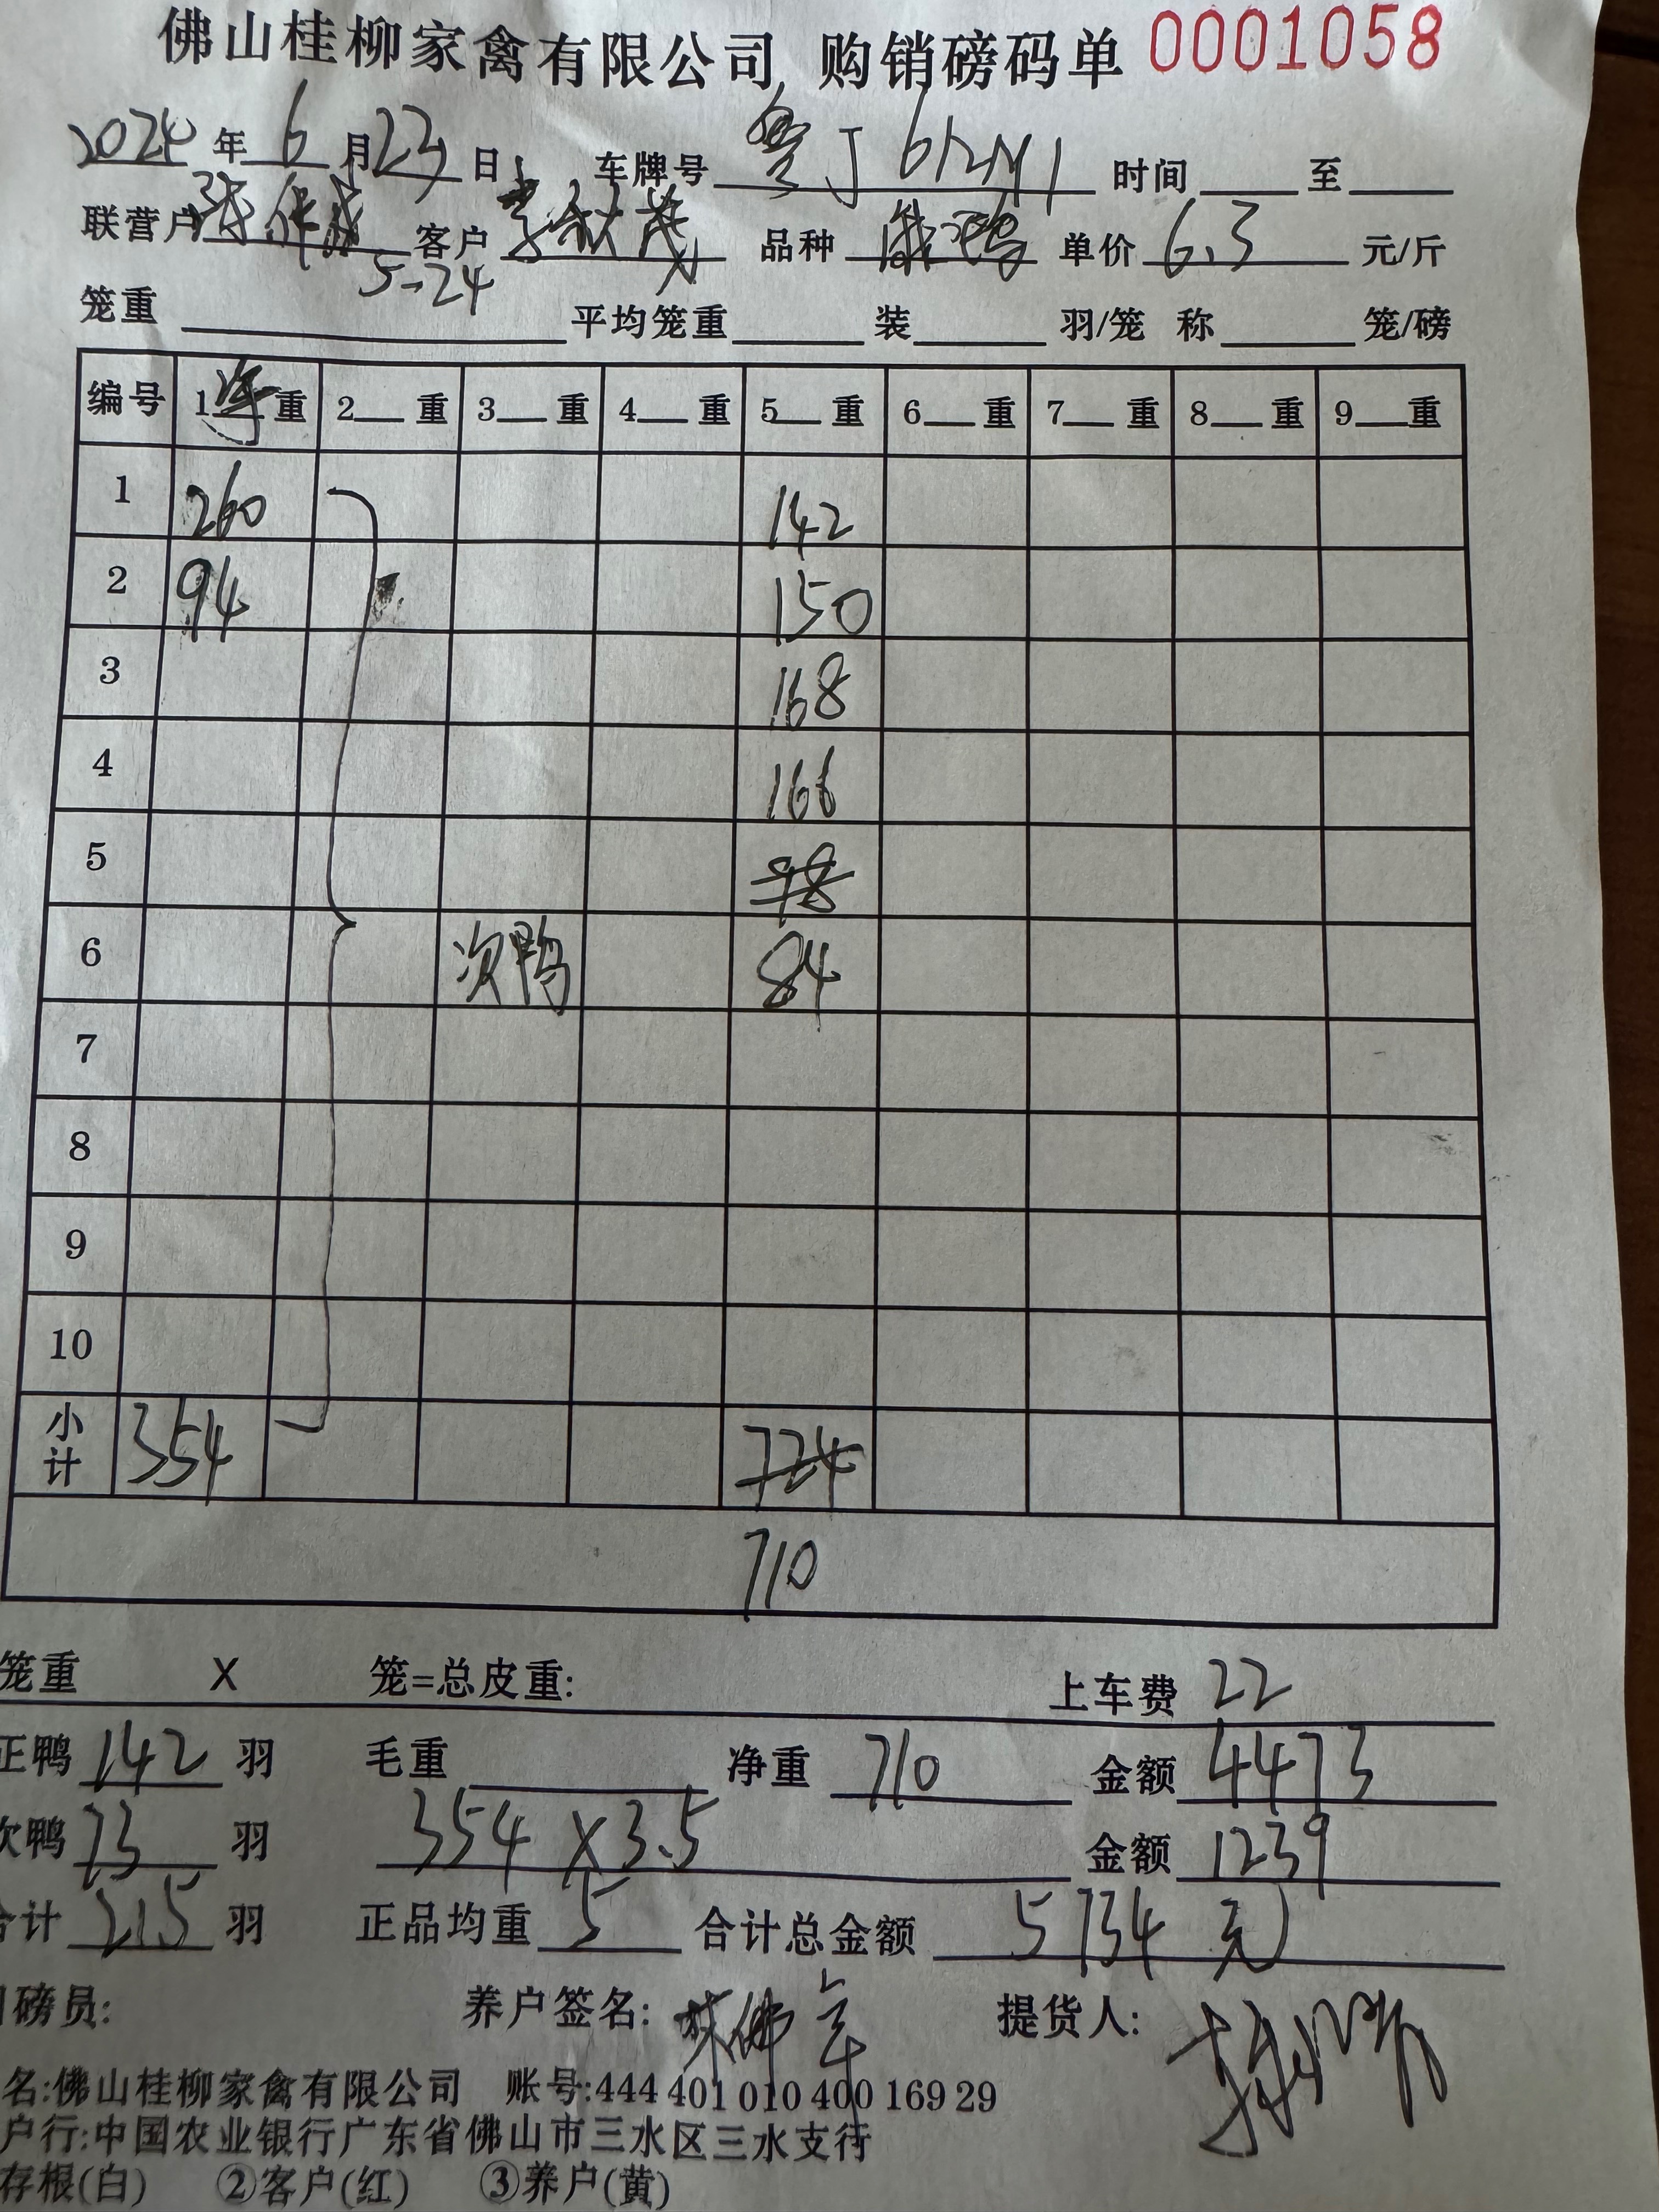 佛山桂柳家禽有限公司 购销磅码单 0001058
2024 年 6 月 23 日 车牌号 粤J 时间 至
联营户 客户 李秋茂 品种 单价 6.3 元/斤
5-24
笼重 平均笼重 装 羽/笼 称 笼/磅
编号 1 重 2 重 3 重 4 重 5 重 6 重 7 重 8 重 9 重
1 260 142
2 94 150
3 168
4 166
5 98
6 次鸭 84
7
8
9
10
小计 354 724
710
笼重 X 笼=总皮重: 上车费 22
正鸭 142 羽 毛重 净重 710 金额 4473
次鸭 73 羽 354 X 3.5 金额 1239
合计 215 羽 正品均重 5 合计总金额 5734 元
磅员: 养户签名: 提货人:
名:佛山桂柳家禽有限公司 账号:444 401 010 400 169 29
户行:中国农业银行广东省佛山市三水区三水支行
存根(白) ②客户(红) ③养户(黄)